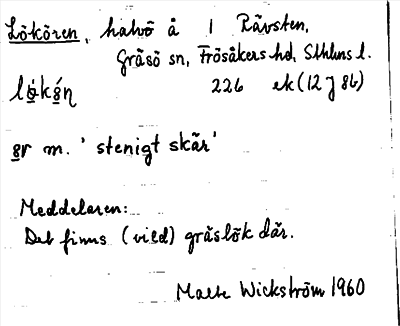 Lökören, halvö å 1 Rävsten,
Gräsö sn, Frösåkers hd, Sthlms l.
226 ek (12 J 8b)
ör m. 'stenigt skär'
Meddelaren:
Det finns (vild) gräslök där.
Malte Wickström 1960